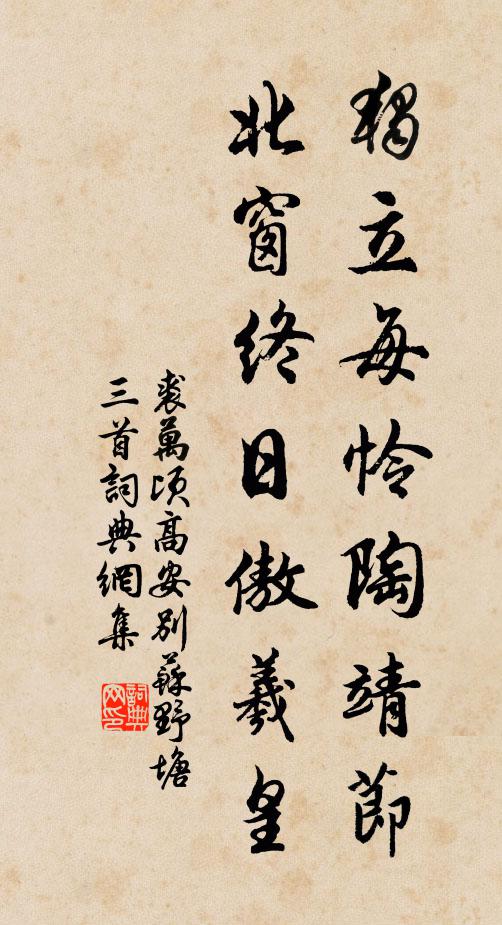 獨立每怜陶靖節
北窗終日傲羲皇
裘萬頃高安別蘇野塘
三首詞典網集
詞典
网印